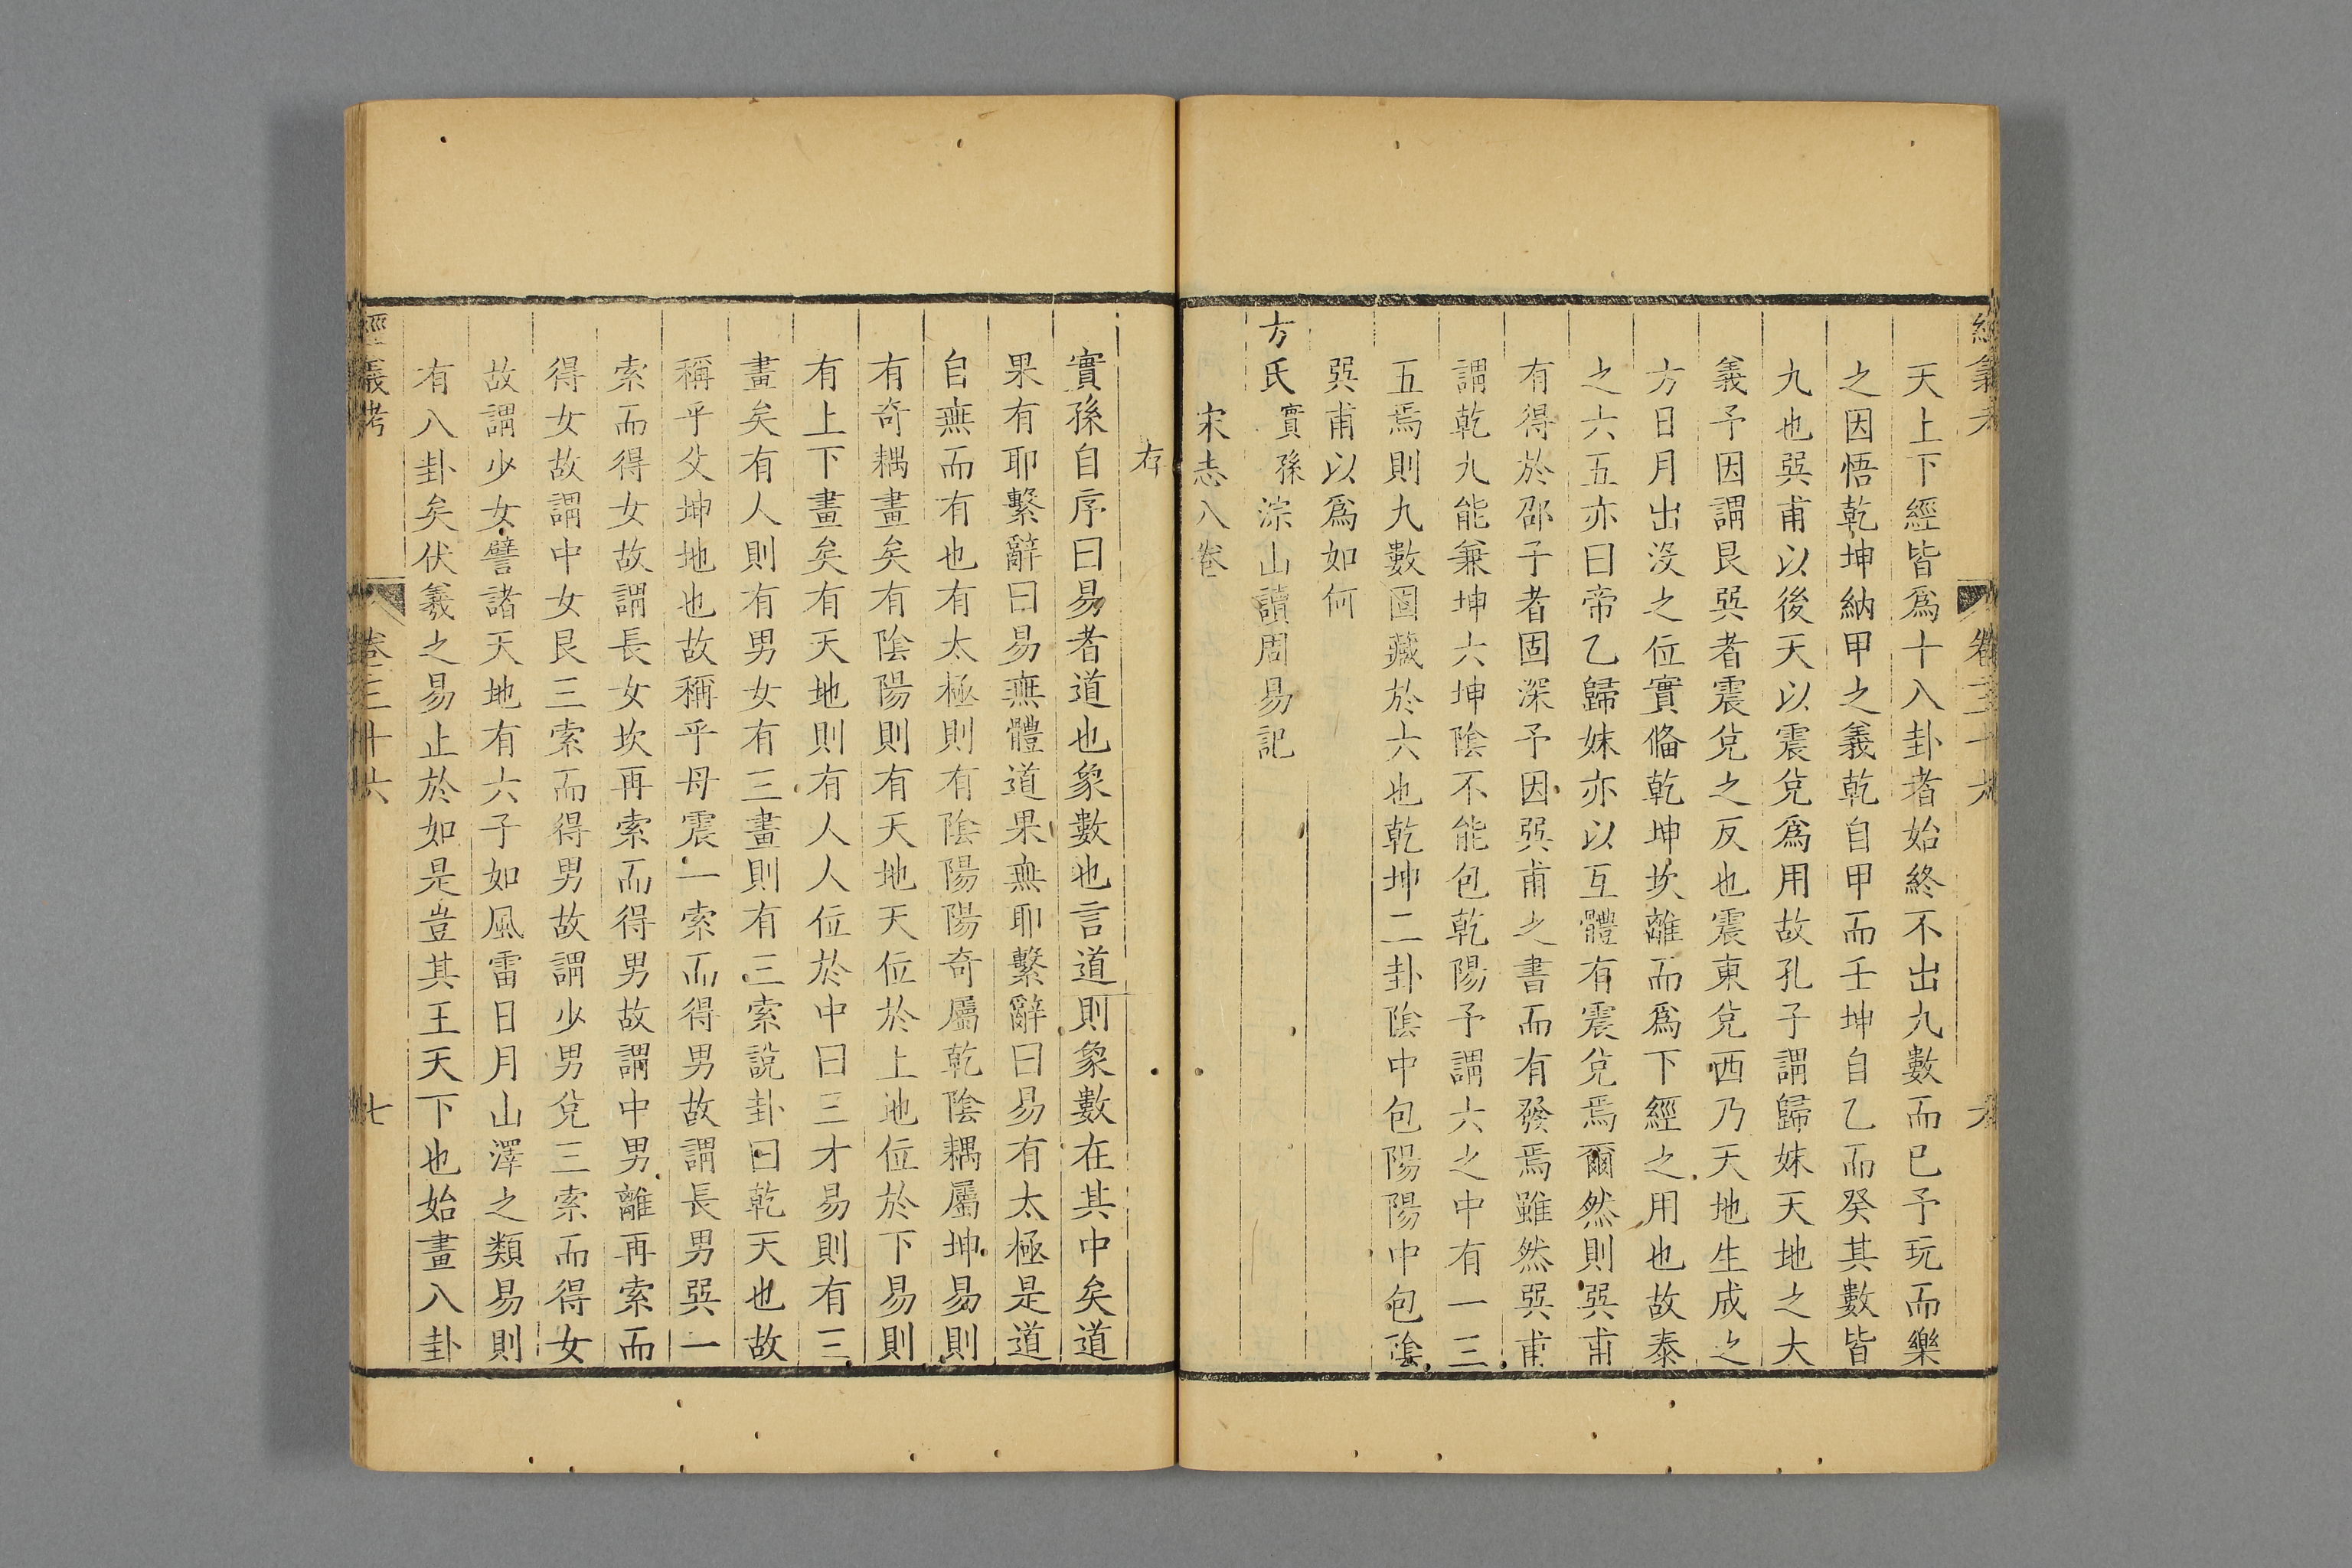 天上下經皆爲十八卦者始終不出九數而已予玩而樂
之因悟乾坤納甲之義乾自甲而壬坤自乙而癸其數皆
九也巽甫以後天以震兌爲用故孔子謂歸妹天地之大
義予因謂艮巽者震兌之反也震東兌西乃天地生成之
方日月出沒之位實備乾坤坎離而爲下經之用也故泰
之六五亦曰帝乙歸妹亦以互體有震兌焉爾然則巽甫
有得於邵子者固深予因巽甫之書而有發焉雖然巽甫
謂乾九能兼坤六坤陰不能包乾陽予謂六之中有一三
五焉則九數固藏於六也乾坤二卦陰中包陽陽中包陰
巽甫以爲如何
方氏實孫淙山讀周易記
宋志八卷
存
實孫自序曰易者道也象數也言道則象數在其中矣道
果有耶繫辭曰易無體道果無耶繫辭曰易有太極是道
自無而有也有太極則有陰陽陽奇屬乾陰耦屬坤易則
有奇耦畫矣有陰陽則有天地天位於上地位於下易則
有上下畫矣有天地則有人人位於中曰三才易則有三
畫矣有人則有男女有三畫則有三索說卦曰乾天也故
稱乎父坤地也故稱乎母震一索而得男故謂長男巽一
索而得女故謂長女坎再索而得男故謂中男離再索而
得女故謂中女艮三索而得男故謂少男兌三索而得女
故謂少女譬諸天地有六子如風雷日月山澤之類易則
有八卦矣伏羲之易止於如是豈其王天下也始畫八卦
經義考
卷三十六
七